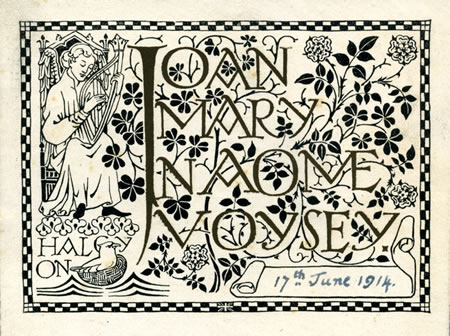 JOAN
MARY
NAOME
VOYSEY.
HAL
CYON
17th June 1914.